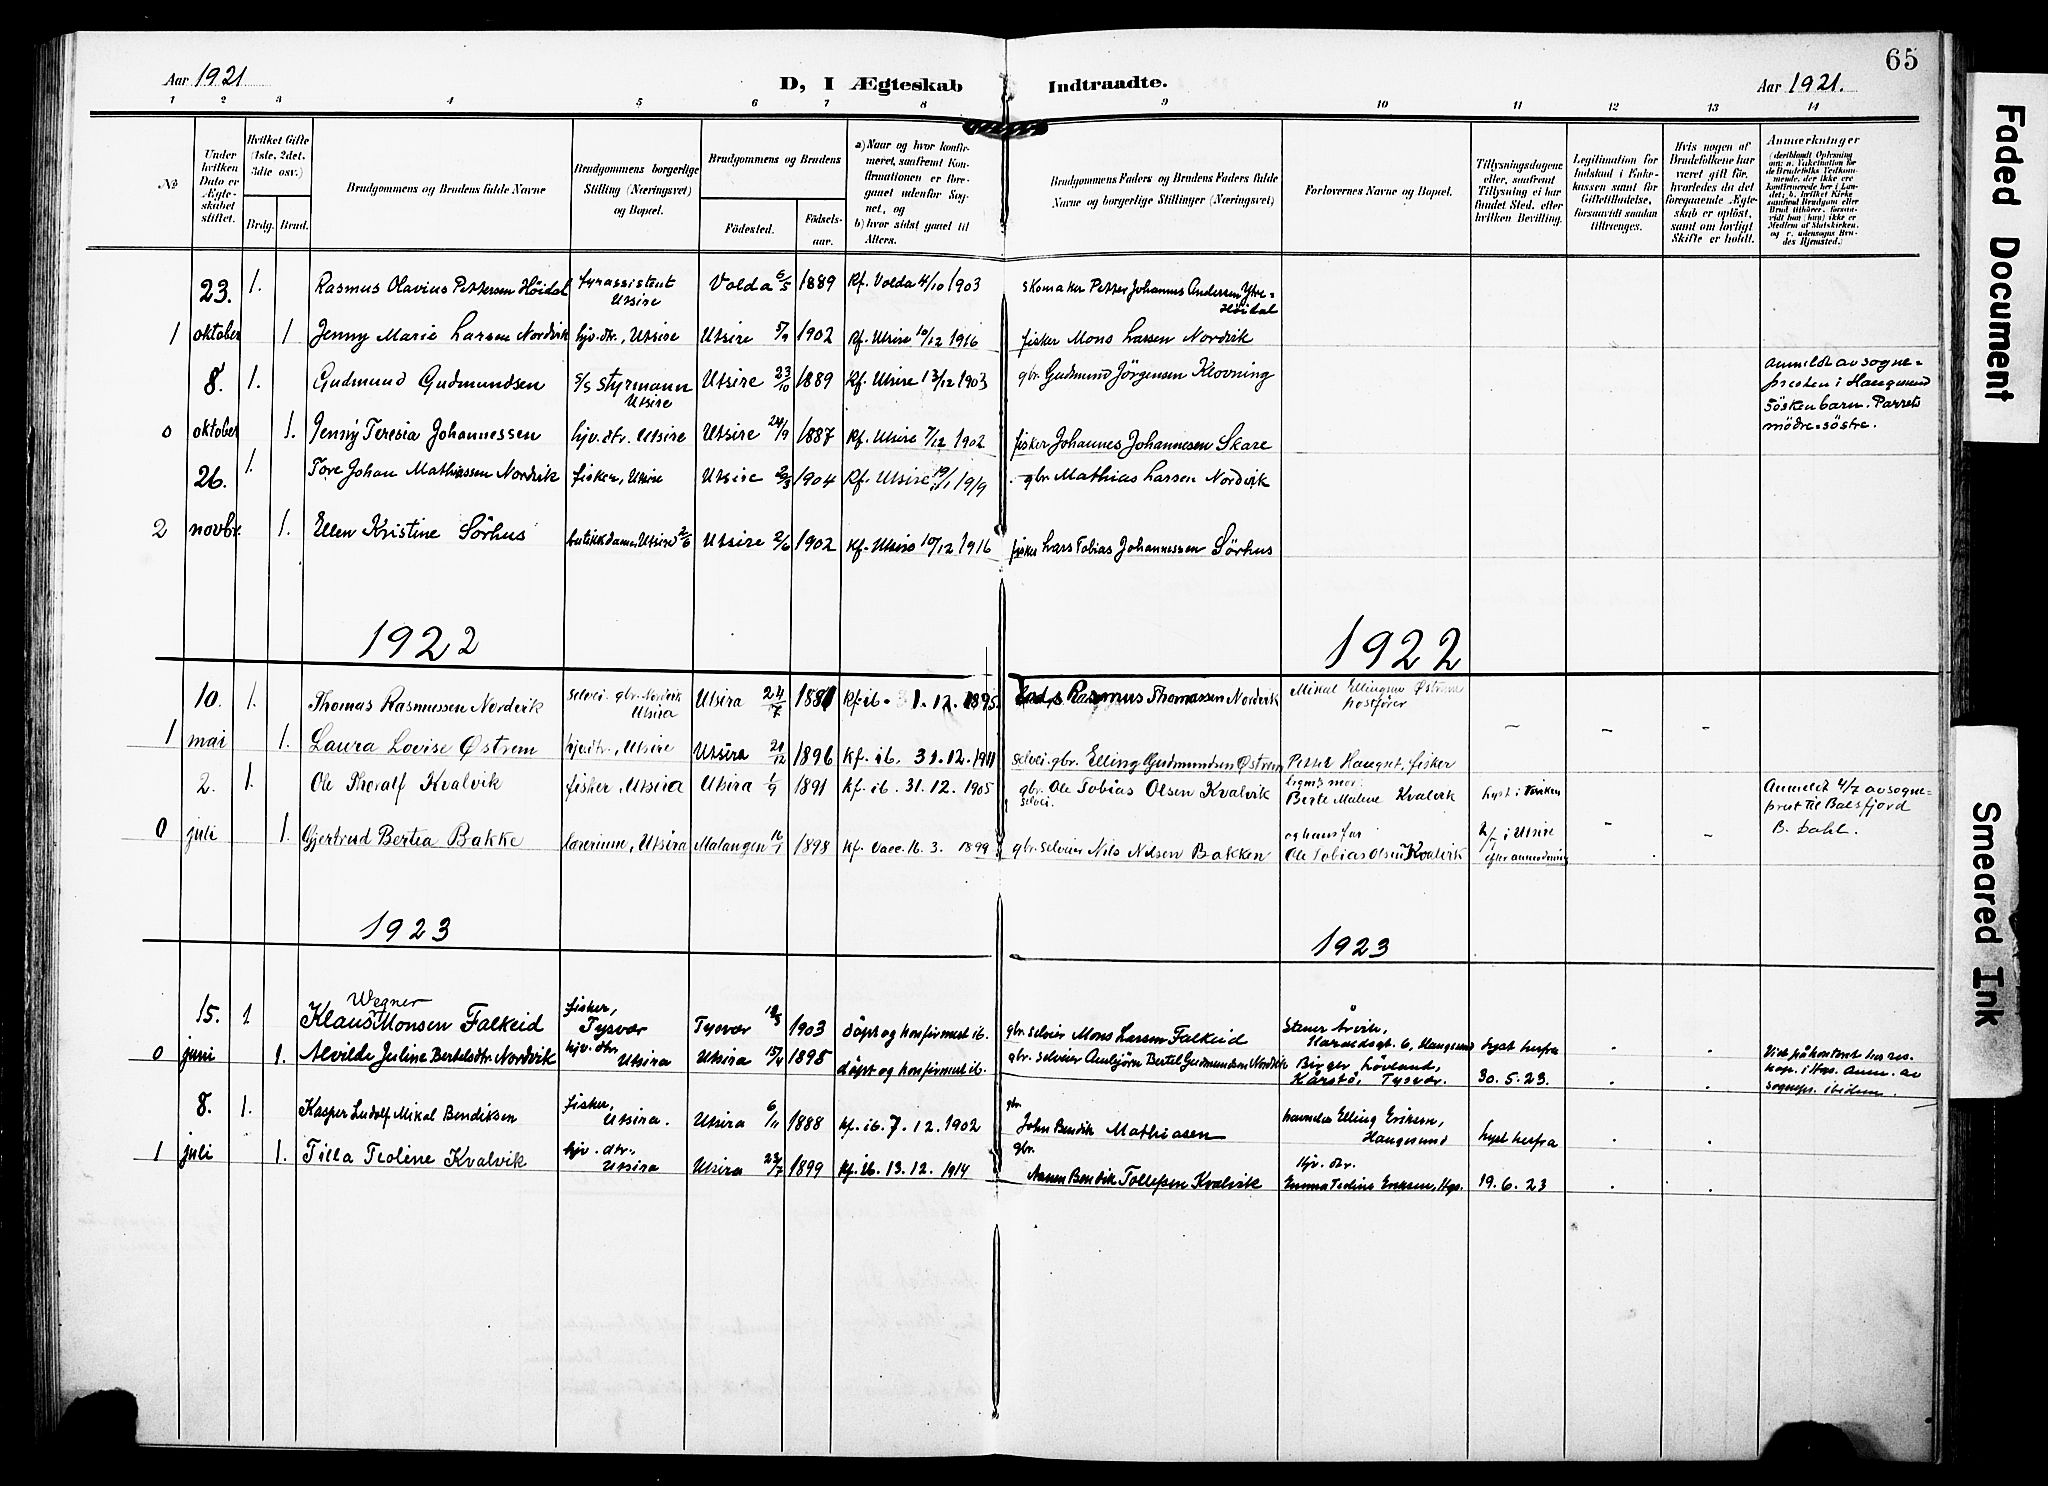 65
Aar 1921
D, I Ægteskab Indtraadte.
Aar 1921.
1 2 3 4 5 6 7 8 9 10 11 12 13 14
No
Under hvilken Dato er Ægteskabet stiftet.
Hvilket Gifte (1ste, 2det, 3die osv.)
Brdg. Brud.
Brudgommens og Brudens fulde Navne
Brudgommens borgerlige Stilling (Næringsvei) og Bopæl.
Brudgommens og Brudens
Födested.
Födselsaar.
a) Naar og hvor konfirmeret, saafremt Konfirmationen er foregaaet udenfor Sognet, og
b) hvor sidst gaaet til Alters.
Brudgommens Faders og Brudens Faders fulde Navne og borgerlige Stillinger (Næringsvei)
Forlovernes Navne og Bopæl.
Tillysningsdagene eller, saafremt Tillysning ei har fundet Sted, efter hvilken Bevilling.
Legitimation for Indskud i Enkekassen samt for Giftetilladelse, forsaavidt saadan tiltrænges.
Hvis nogen af Brudefolkene har været gift för, hvorledes da det foregaaende Ægteskab er oplöst, samt om lovligt Skifte er holdt.
Anmerkninger
23. 1. Rasmus Olavius Pettersen Höidal fyrassistent Utsire Volda 6/5 1889 Kf. Volda 4/10 1903 skomaker Petter Johannus Andersen Ytre-Höidal
1 oktober 1 Jenny Marie Larsen Nordvik hjv. dtr., Utsire Utsire 5/9 1902 Kf. Utsire 10/12 1916 fisker Mons Larsen Nordvik
8. 1. Gudmund Gudmundsen S/S styrmann Utsire Utsire 23/10 1889 Kf. Utsire 13/12 1903 gbr. Gudmund Jörgensen Klovning
anmeldt av sognepresten i Haugesund
Söskenbarn. Parrets mödre = söstre.
0 oktober 1. Jenny Teresia Johannessen hjv. dtr. Utsire Utsire 24/9 1887 Kf. Utsire 7/12 1902 fisker Johannes Johannesen Skare
26. 1. Tore Johan Mathiassen Nordvik fisker, Utsire Utsire 2/3 1904 Kf. Utsire 1919 gbr. Mathias Larsen Nordvik
2 novbr. 1. Ellen Kristine Sörhus butikkdame, Utsire Utsire 2/6 1902 Kf. Utsire 10/12 1916 fisker Lars Tobias Johannessen Sörhus
1922 1922
10. 1. Thomas Rasmussen Nordvik selvei. gbr. Nordvik Utsira Utsira 24/7 1881 Kf. ib. 1. 12. 1895. Rasmus Thomassen Nordvik Mikal Ellingsen Østrem
1 mai 1. Laura Lovise Østrem hjv. dtr., Utsire Utsira 21/12 1896 kf. ib. 31. 12. 1911 selvei. gbr. Elling Gudmundsen Østrem Petter Hauget, fisker – – –
2. 1. Ole Thoralf Kvalvik fisker, Utsira Utsira 1/9 1891 kf. ib. 31. 12. 1905 gbr. selvei. Ole Tobias Olsen Kvalvik Berte Malene Kvalvik lyst i
Anmeldt 4/7 av sogneprest til Balsfjord B. Dahl.
0 juli 1. Gjertrud Bertea Bakke lærerinne, Utsira Malangen 1898 Kf. vacc. 16. 3. 1899 gbr. selveier Nils Nilsen Bakken og hans far Ole Tobias Olsen Kvalvik i Utsire efter anmodning – –
1923 1923
15. 1 Klaus Wegner Monsen Falkeid fisker, Tysvær Tysvær 18/5 1903 döpt og konfirmert ib. gbr. selveier Mons Larsen Falkeid Stener Årvik, Haraldsgt. 6, Haugesund lyst herfra
0 juni 1. Alvilde Juline Bertelsdtr. Nordvik hjv. dtr Utsira Utsira 15/4 1895 döpt og konfirmert ib. gbr. selveier Ambjörn Bertel Gudmundsen Nordvik Birger Lövland, Kårstö, Tysvær. 30. 5. 23.
Viet på kontoret hos res. kap. i Hgs. Anm. av sognepr. ibidem.
8. 1. Kasper Ludolf Mikal Bendiksen fisker, Utsira. Utsira 6/11 1888 kf. ib. 7. 12. 1902 gbr. John Bendik Mathiasen Elling Eriksen, Haugesund lyst herfra
1 juli 1. Tilla Teoline Kvalvik hjv. dtr. Utsira Utsira 23/7 1899 Kf. ib. 13. 12. 1914 gbr. Aanen Bendik Tollefsen Kvalvik Hjv. dtr. Emma Teoline Eriksen, Hgs. 19. 6. 23
Faded Document
Smeared Ink